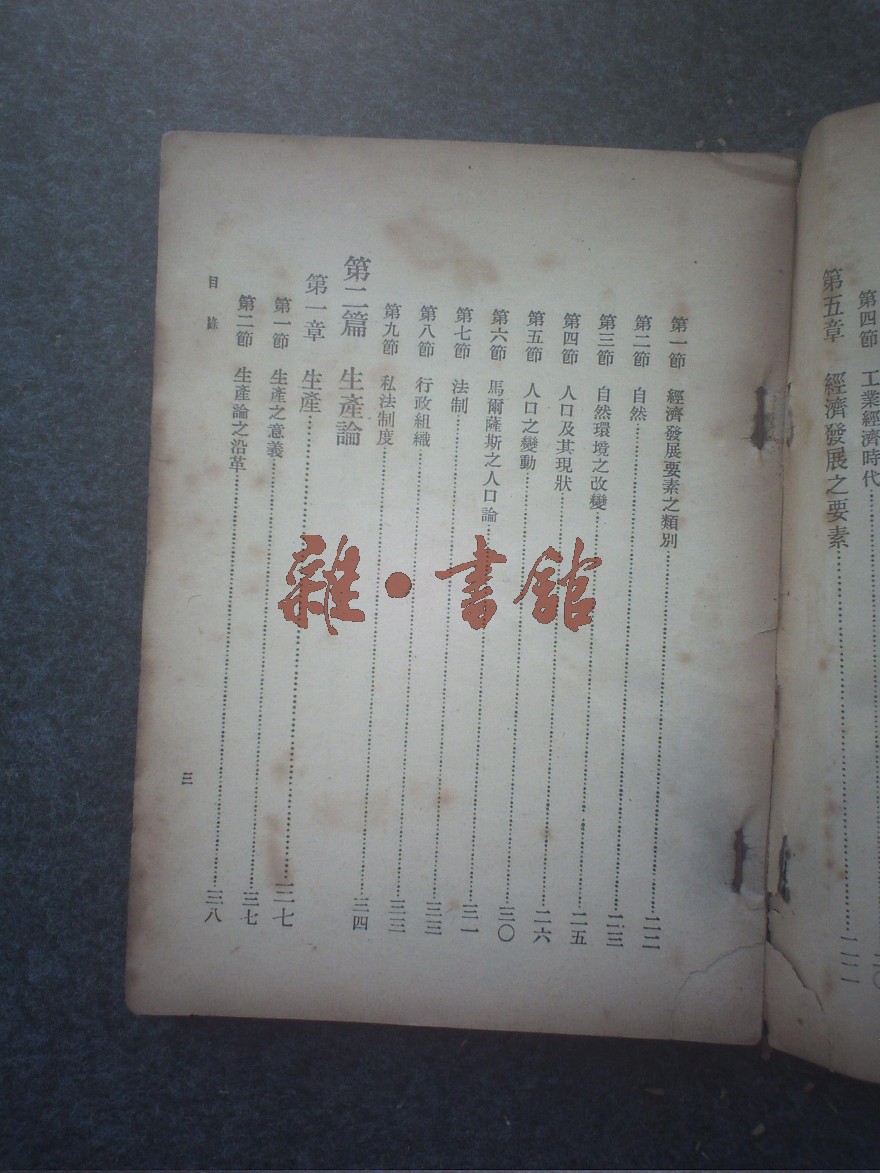 第四節 工業經濟時代……二〇
第五章 經濟發展之要素……二二
第一節 經濟發展要素之類別……二二
第二節 自然……二三
第三節 自然環境之改變……二五
第四節 人口及其現狀……二六
第五節 人口之變動……三〇
第六節 馬爾薩斯之人口論……三一
第七節 法制……三三
第八節 行政組織……三三
第九節 私法制度……三四
第二篇 生產論
第一章 生產……三七
第一節 生產之意義……三七
第二節 生產論之沿革……三八
目錄
三
雜·書館